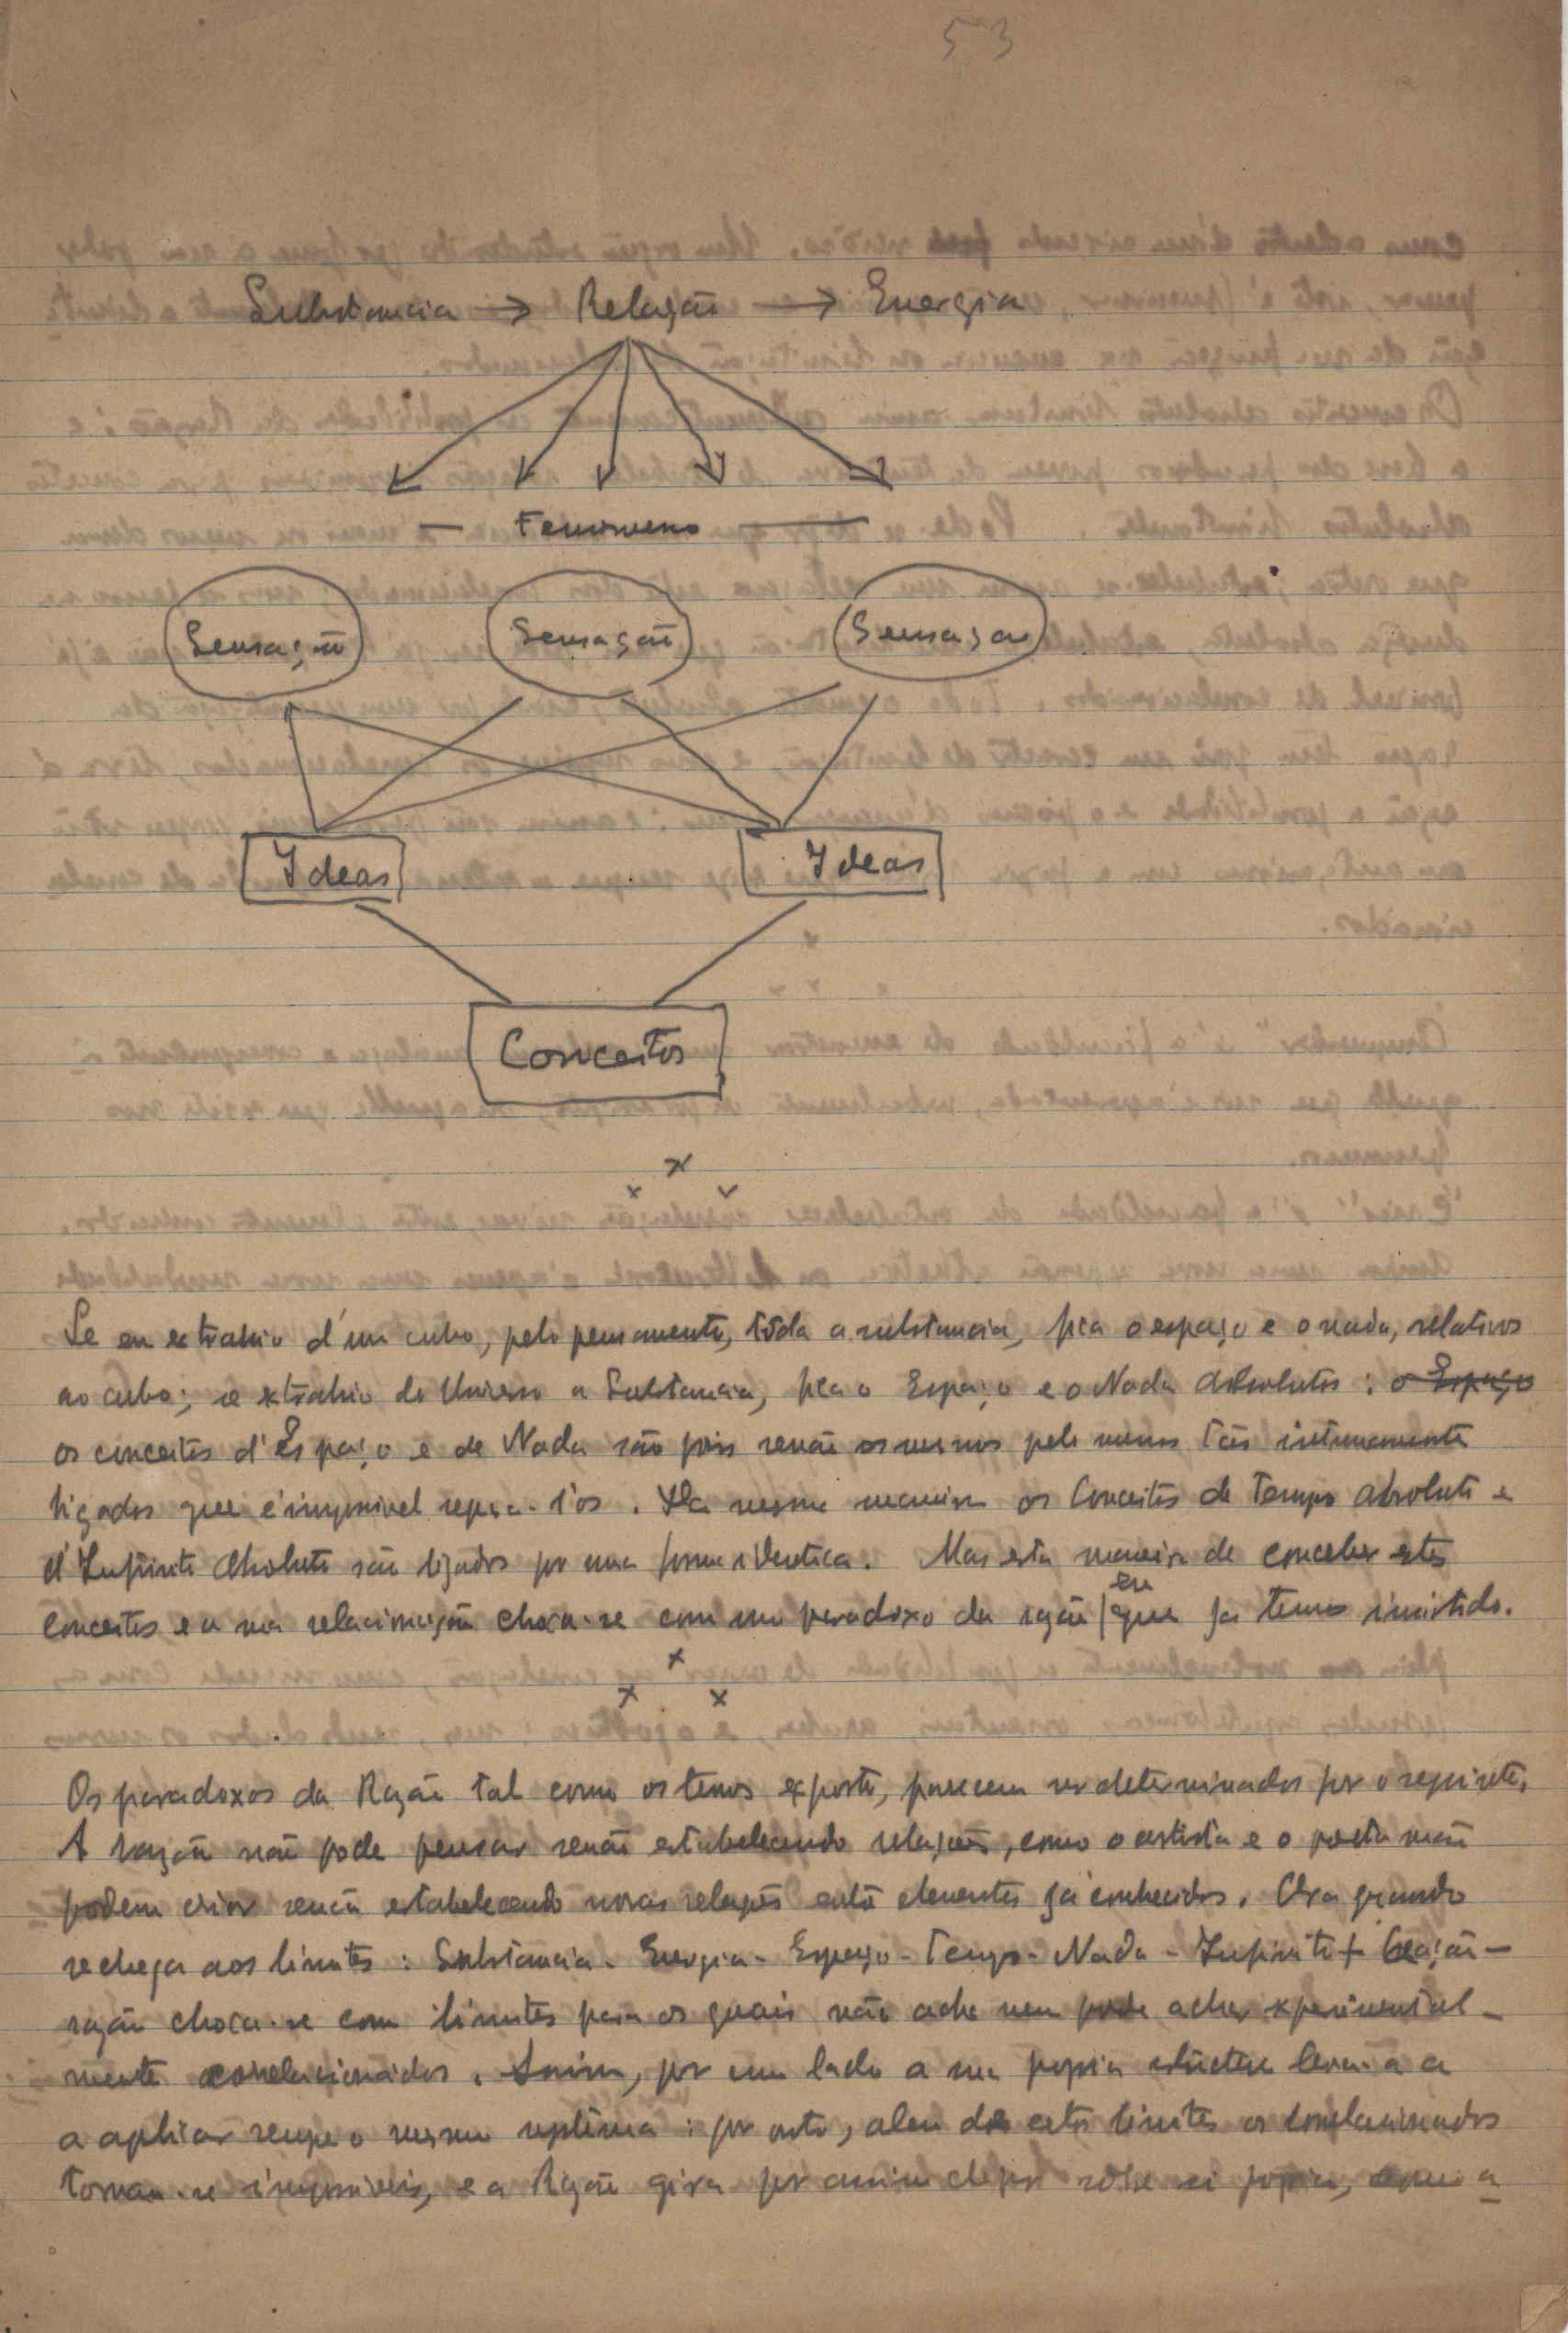 53
Substancia → Relação → Energia
— Fenomeno —
Sensação Sensação Sensação
Ideas Ideas
Conceitos
x
x x
Se eu extrahio d'um cubo, pelo pensamento, tôda a substancia, fica o espaço e o nada, relativos
ao cubo; se extrahio do Universo a Substancia, fica o Espaço e o Nada absolutos : o Espaço
os conceitos d'Espaço e de Nada são pois senão os mesmos pelo menos tão intimamente
ligados que é impossivel separa-l'os. Da mesma maneira os Conceitos de Tempo absoluto e
d'Infinito absoluto são ligados por uma forma identica. Mas esta maneira de conceber estes
conceitos e a sua relacionação choca-se com um paradoxo da razão em que já temos insistido.
x
x x
Os paradoxos da Razão tal como os temos exposto, parecem ser determinados por o seguinte.
A razão não pode pensar senão estabelecendo relações, como o artista e o poeta não
podem criar senão estabelecendo novas relações entre elementos já conhecidos. Ora quando
se chega aos limites : Substancia - Energia - Espaço - Tempo - Nada - Infinito + Criação -
razão choca-se com limites para os quais não acha nem pode achar experimental-
mente correlacionados. Assim, por um lado a sua propria estructura leva-a a
a aplicar sempre o mesmo systema : por outro, alem de estes limites os correlacionados
tornam-se impossiveis, e a Razão gira por assim dizer sobre si propria, como a